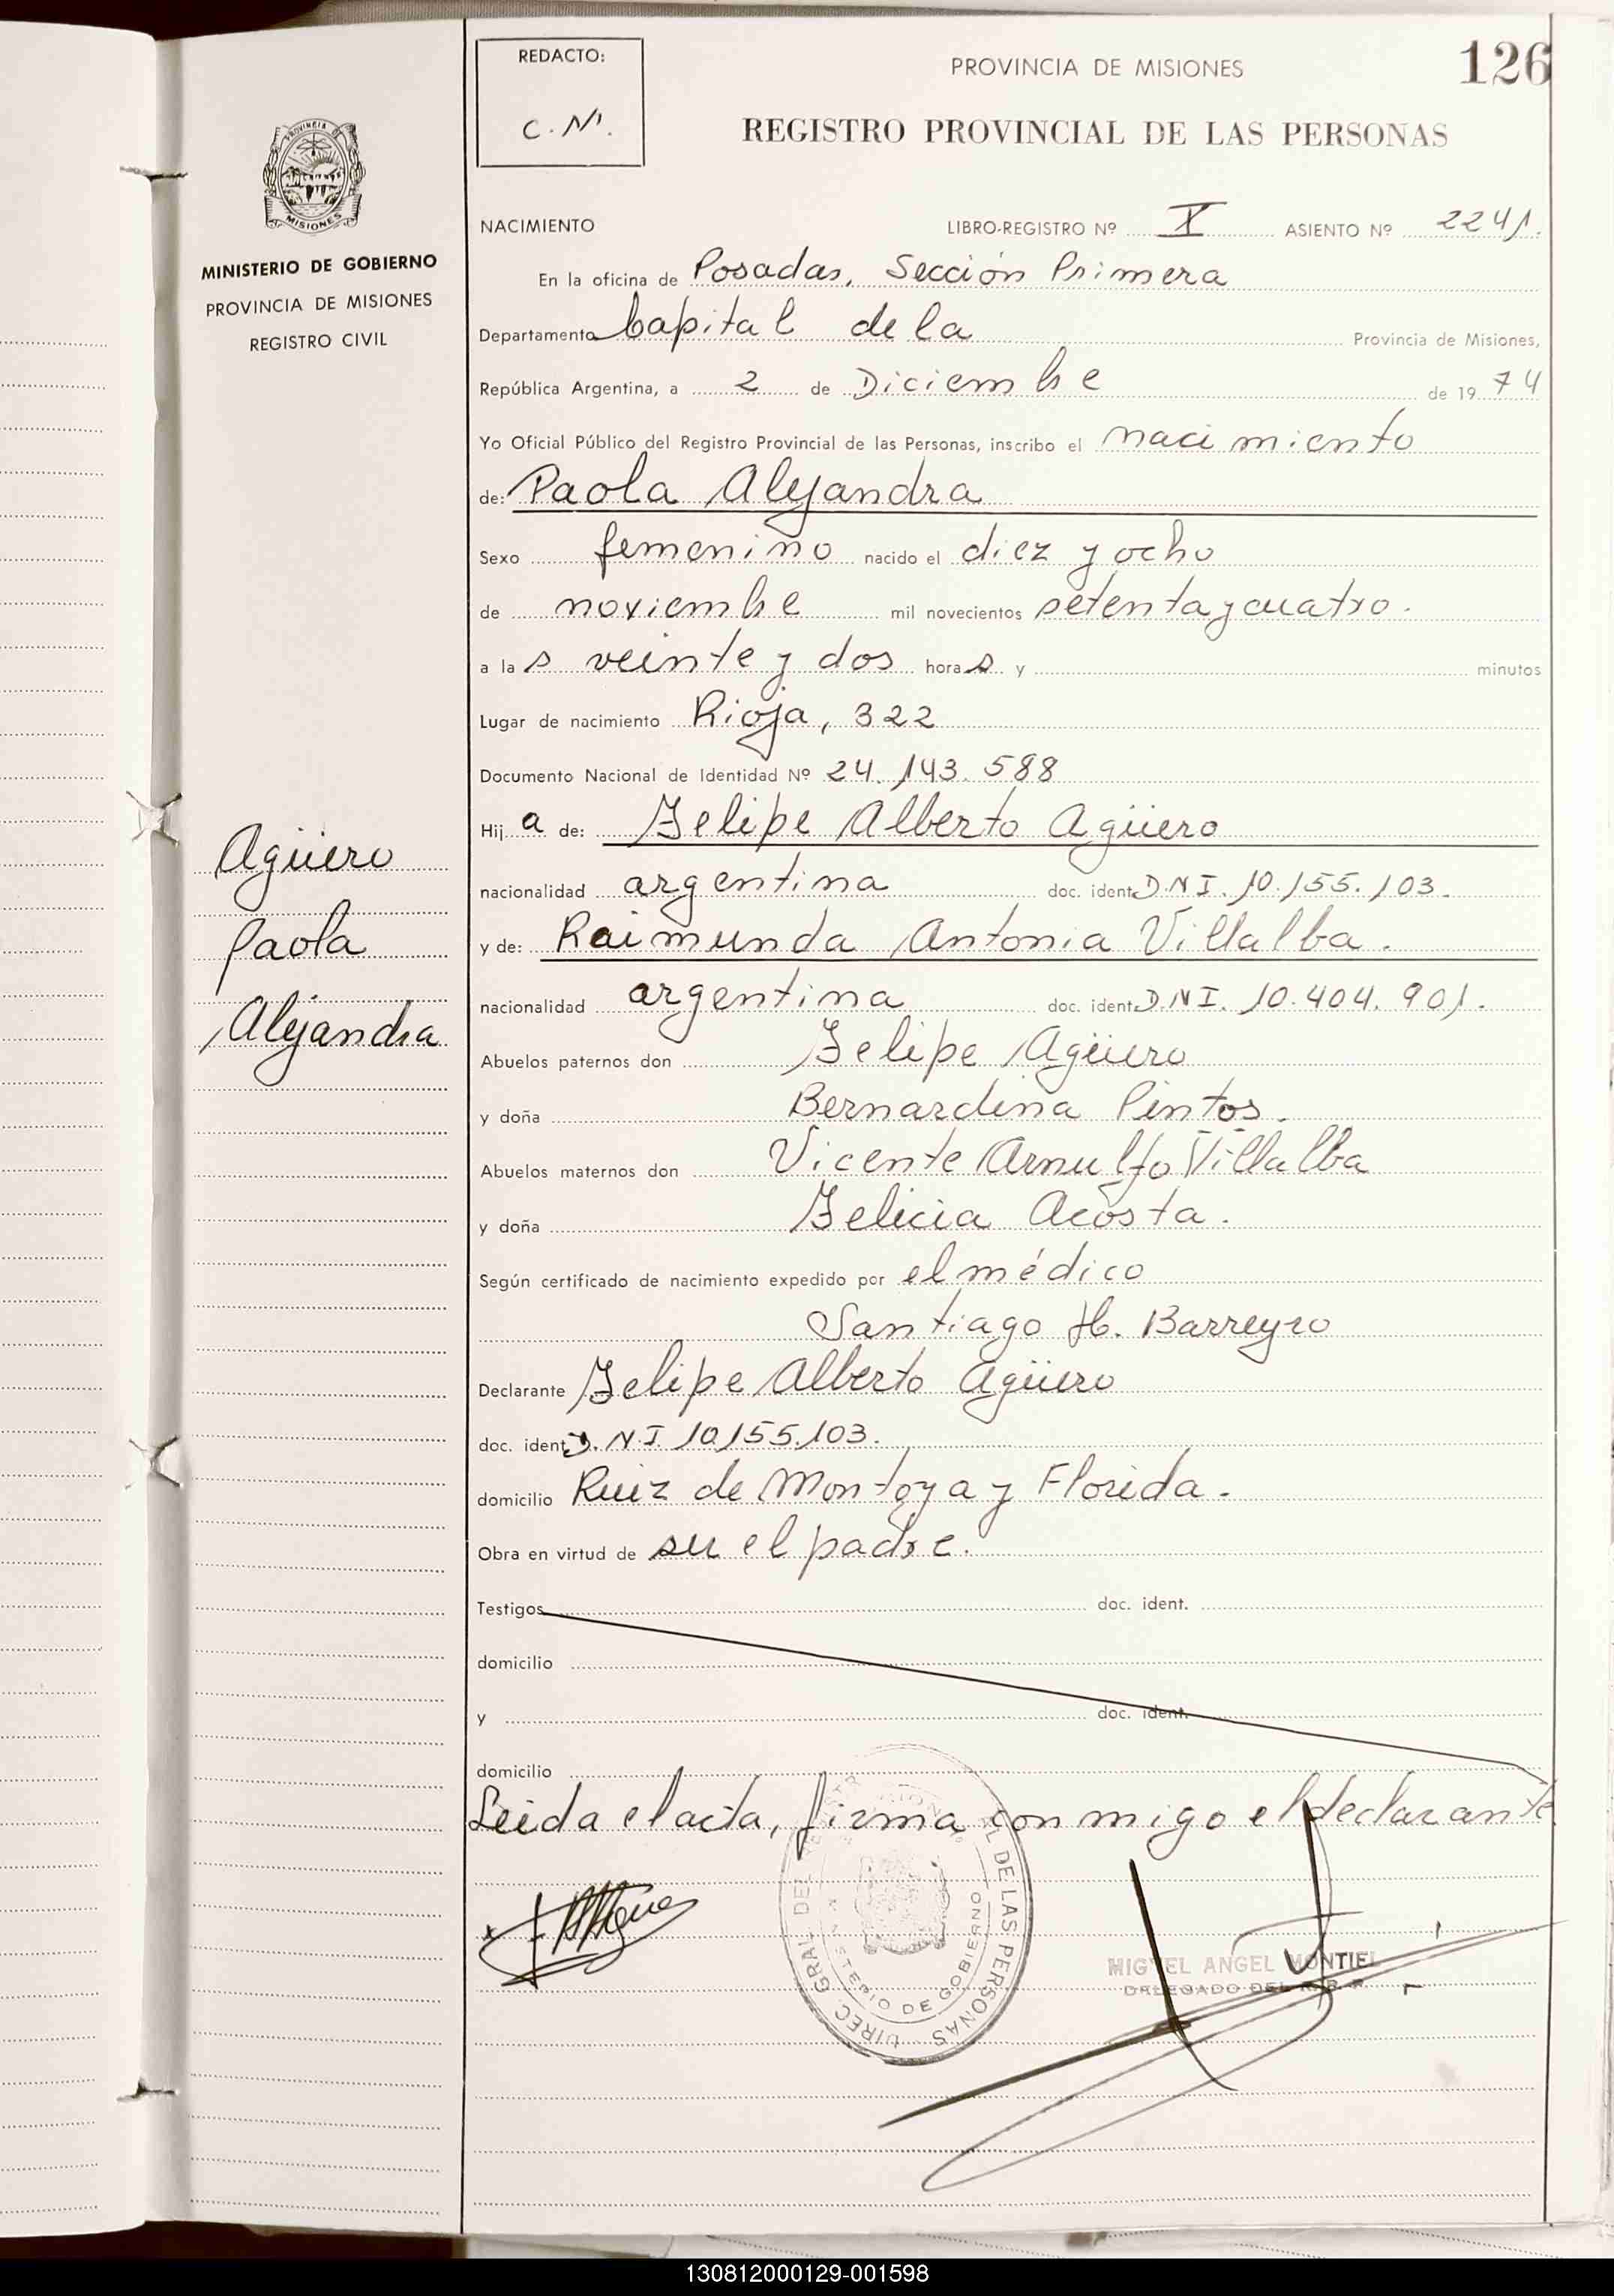 REDACTO:
C. N.
PROVINCIA DE MISIONES
126
REGISTRO PROVINCIAL DE LAS PERSONAS
PROVINCIA DE
MISIONES
MINISTERIO DE GOBIERNO
PROVINCIA DE MISIONES
REGISTRO CIVIL
NACIMIENTO LIBRO-REGISTRO Nº X ASIENTO Nº 2241.
En la oficina de Posadas, Sección Primera
Departamento Capital de la Provincia de Misiones,
República Argentina, a 2 de Diciembre de 1974
Yo Oficial Público del Registro Provincial de las Personas, inscribo el nacimiento
de: Paola Alejandra
Sexo femenino nacido el diez y ocho
de noviembre mil novecientos setenta y cuatro.
a las veinte y dos horas y minutos
Lugar de nacimiento Rioja, 322
Documento Nacional de Identidad Nº 24.143.588
Hija de: Felipe Alberto Agüero
nacionalidad argentina doc. ident. D.N.I. 10.155.103.
y de: Raimunda Antonia Villalba.
nacionalidad argentina doc. ident. D.N.I. 10.404.901.
Abuelos paternos don Felipe Agüero
y doña Bernardina Pintos.
Abuelos maternos don Vicente Arnulfo Villalba
y doña Felicia Acosta.
Según certificado de nacimiento expedido por el médico
Santiago H. Barreyro
Declarante Felipe Alberto Agüero
doc. ident. D.N.I. 10.155.103.
domicilio Ruiz de Montoya y Florida.
Obra en virtud de su el padre.
Testigos doc. ident.
domicilio
y doc. ident.
domicilio
Leida el acta, firma conmigo el declarante
Agüero
Paola
Alejandra
DIREC. GRAL DEL REGISTRO PROVINCIAL DE LAS PERSONAS
MINISTERIO DE GOBIERNO
MIGUEL ANGEL MONTIEL
DELEGADO DEL R.P.P.
130812000129-001598